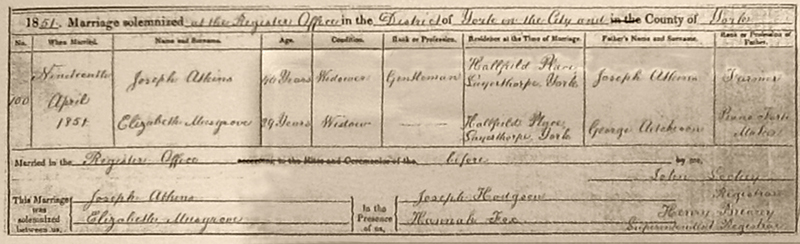 1851. Marriage solemnized at the Register Office in the District of York in the City and in the County of York
No. When Married. Name and Surname. Age. Condition. Rank or Profession. Residence at the Time of Marriage. Father's Name and Surname. Rank or Profession of Father.
100 Nineteenth April 1851 Joseph Atkins 40 Years Widower Gentleman Hallfield Place Layerthorpe, York Joseph Atkins Farmer
Elizabeth Musgrove 39 Years Widow Hallfield Place Layerthorpe, York George Piano Forte Maker
Married in the Register Office according to the Rites and Ceremonies of the before by me,
This Marriage was solemnized between us, Joseph Atkins In the Presence of us, Joseph Hodgson John Registrar
Elizabeth Musgrove Hannah Fox Henry Superintendent Registrar